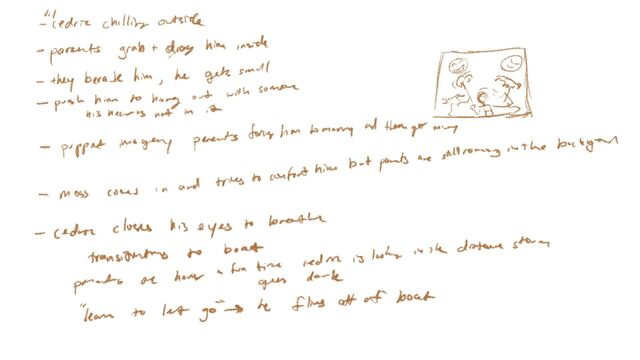 - "lil" cedric chilling outside
- parents grab + drag him inside
- they berate him, he gets small
- push him to hang out with someone
his heart's not in it
- puppet imagery parents force him to marry and
- moss comes in and tries to comfort him but parents are still running in the background
- cedric closes his eyes to breathe
transitions to boat
parents are having a fun time cedric is looking in the distance
goes dark
"learn to let go" → he flings off of boat